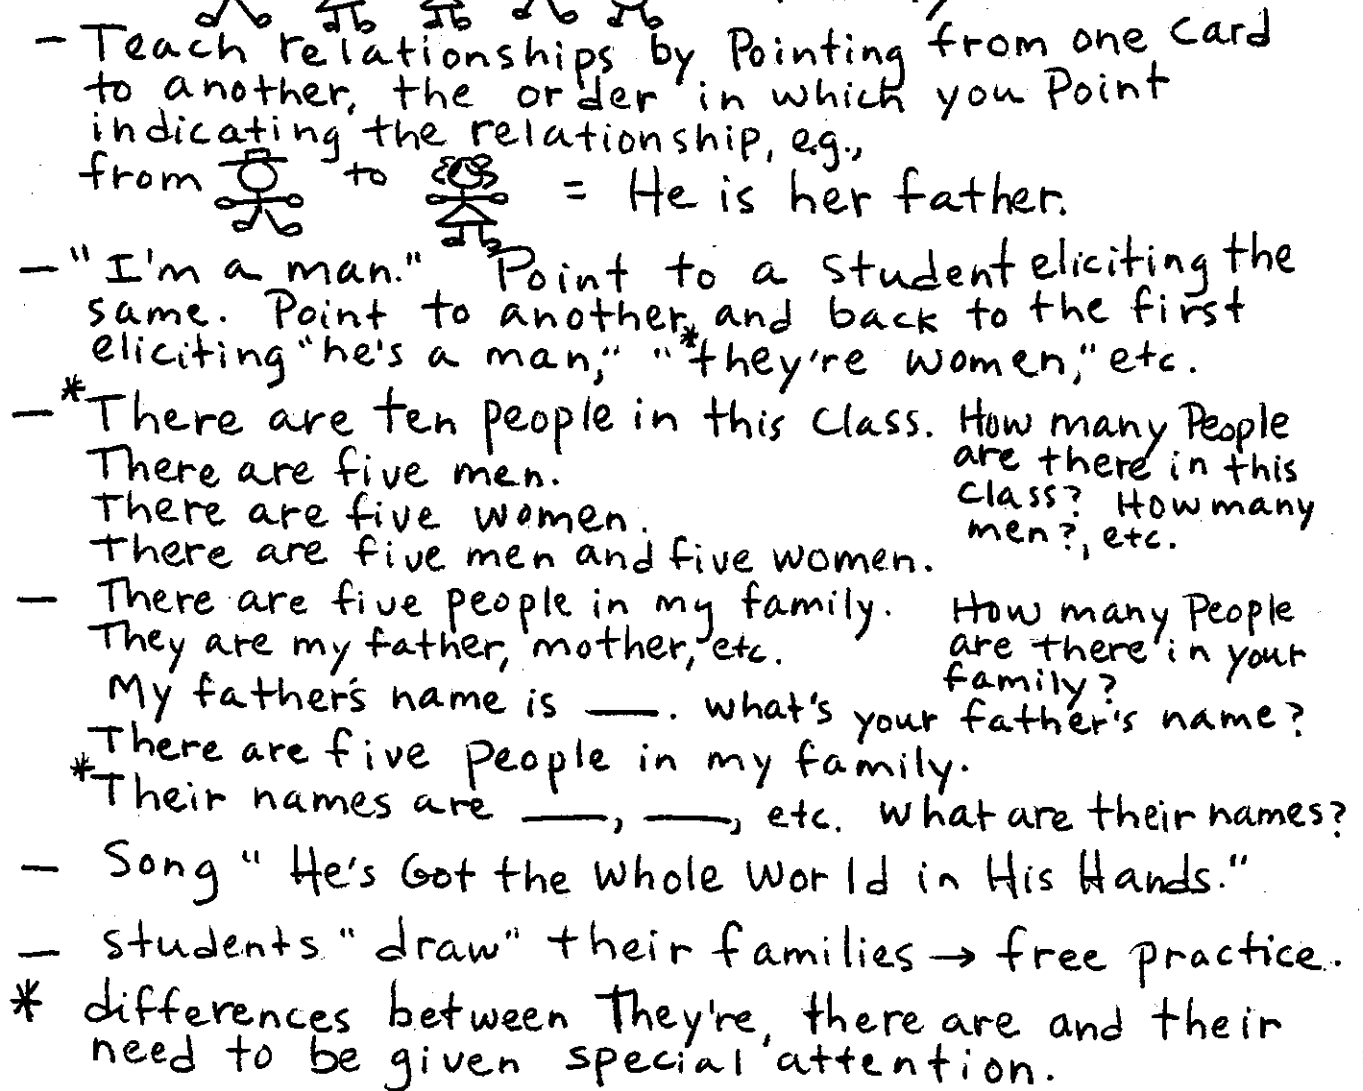 - Teach relationships by Pointing from one card
to another, the order in which you Point
indicating the relationship, e.g.,
from to = He is her father.
- "I'm a man." Point to a student eliciting the
same. Point to another, and back to the first
eliciting "he's a man," "*they're women," etc.
- *There are ten people in this class. How many People
There are five men. are there in this
There are five women. class? How many
There are five men and five women. men?, etc.
- There are five people in my family. How many People
They are my father, mother, etc. are there in your
family?
My father's name is ___. what's your father's name?
There are five people in my family.
*Their names are ___, ___, etc. What are their names?
- Song "He's Got the Whole World in His Hands."
- students "draw" their families → free practice.
* differences between They're, there are and their
need to be given special attention.